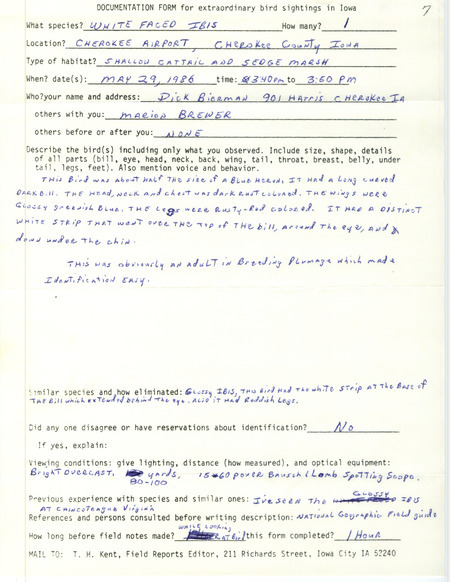 DOCUMENTATION FORM for extraordinary bird sightings in Iowa
7
What species? WHITE FACED IBIS How many? 1
Location? CHEROKEE AIRPORT, CHEROKEE COUNTY IOWA
Type of habitat? SHALLOW CATTAIL AND SEDGE MARSH
When? date(s): MAY 29, 1986 time: 3:40pm to 3:50 PM
Who? your name and address: Dick Bierman 901 Harris CHEROKEE IA
others with you: MARION BREWER
others before or after you: NONE
Describe the bird(s) including only what you observed. Include size, shape, details
of all parts (bill, eye, head, neck, back, wing, tail, throat, breast, belly, under
tail, legs, feet). Also mention voice and behavior.
This Bird was about Half the size of a Blue Heron, IT HAD A Long curved
DARK Bill. THE HEAD, Neck and chest was dark rust colored. THE wings were
Glossy greenish Blue. The Legs were Rusty-Red colored. IT HAD A DISTINCT
WHITE STRIP THAT went over the top of the bill, around the eye, and
down under the chin.
THIS was obviously an adult in Breeding Plumage which made
Identification EASY.
Similar species and how eliminated: Glossy IBIS, THIS Bird HAD THE white STRIP AT THE Base of
THE Bill which extended behind the eye. Also it HAD Reddish Legs.
Did any one disagree or have reservations about identification? No
If yes, explain:
Viewing conditions: give lighting, distance (how measured), and optical equipment:
Bright OVERCAST, yards, 15-60 power Bausch & Lomb Spotting Scope.
80-100
Previous experience with species and similar ones: I've seen the GLOSSY IBIS
AT CHINCOTEAGUE Virginia
References and persons consulted before writing description: NATIONAL Geographic Field guide
How long before field notes made? WHILE LOOKING AT Bird this form completed? 1 Hour
MAIL TO: T. H. Kent, Field Reports Editor, 211 Richards Street, Iowa City IA 52240